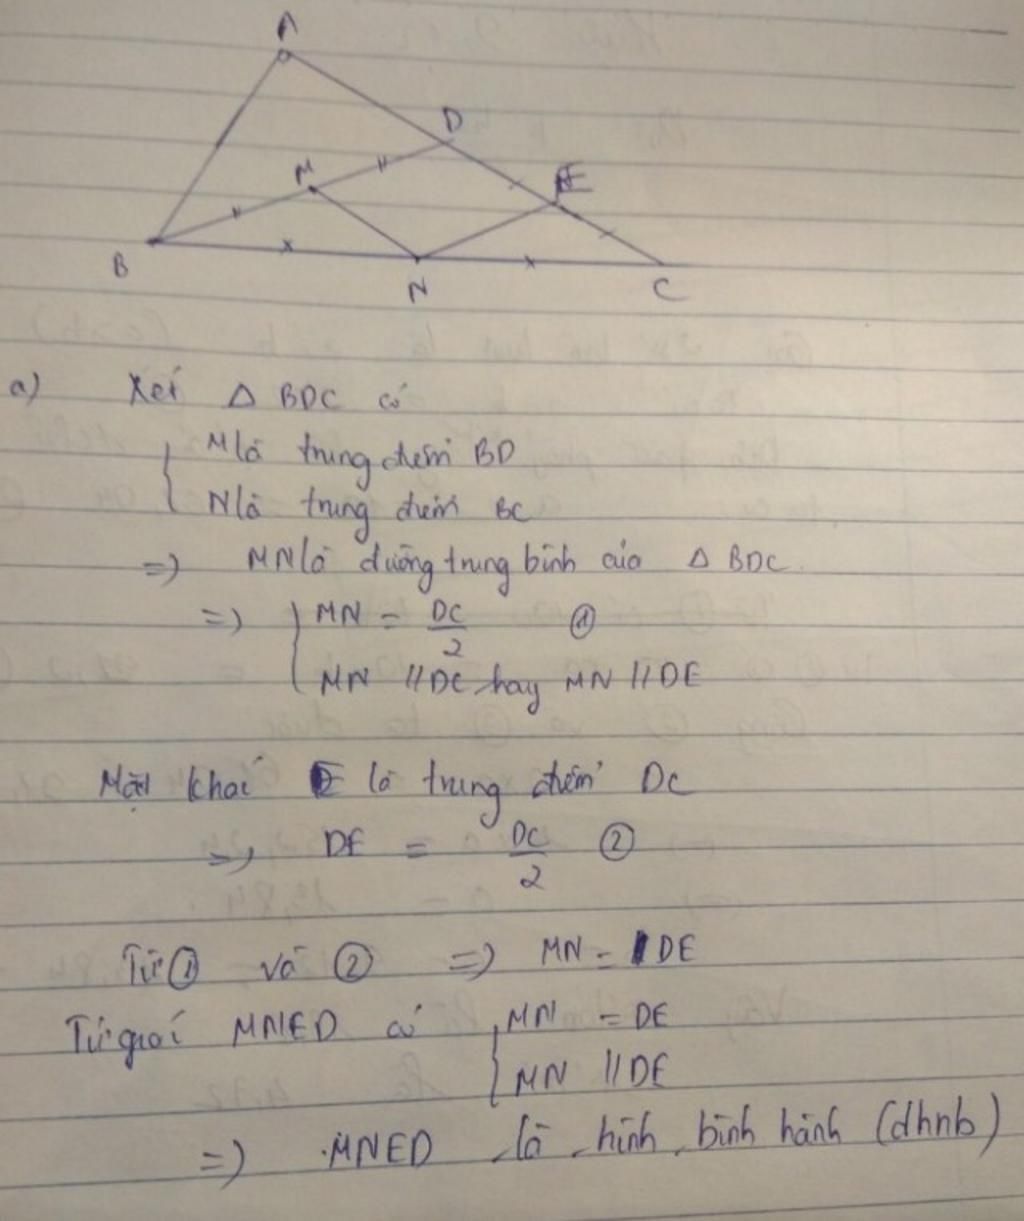 A
D
M
E
B
N
C
a) Xét Δ BDC có
M là trung điểm BD
N là trung điểm BC
=> MN là đường trung bình của Δ BDC.
=> MN = DC/2 ①
MN // DC hay MN // DE
Mặt khác E là trung điểm DC
=> DE = DC/2 ②
Từ ① và ② => MN = DE
Tứ giác MNED có MN = DE
MN // DE
=> MNED là hình bình hành (dhnb)